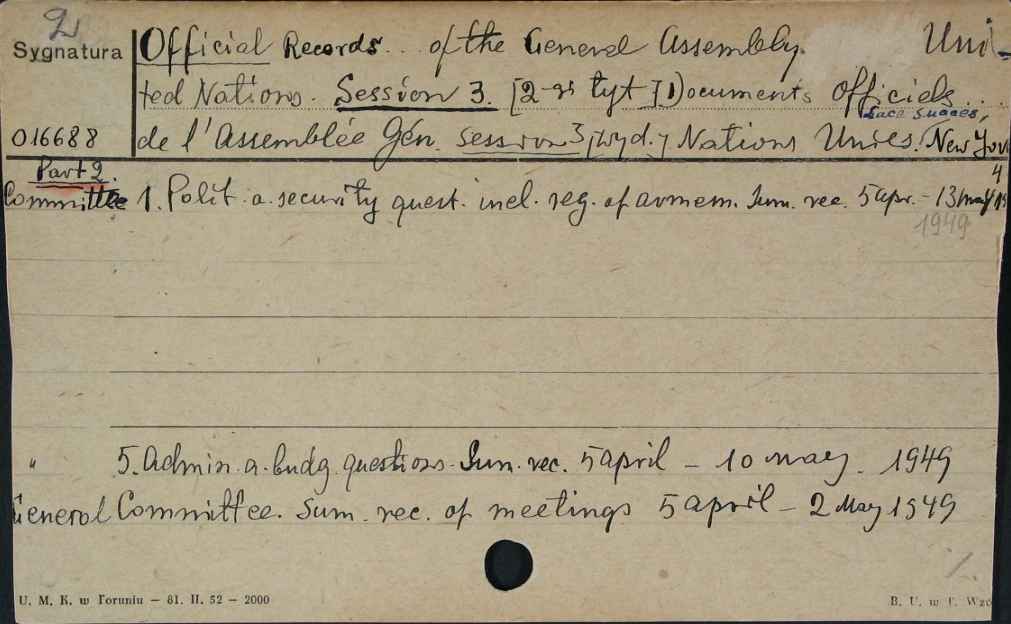 2
Sygnatura Official Records... of the General Assembly. Uni-
ted Nations. Session 3. [2-gi tyt.] Documents officiels...
Lace Succes,
016688 de l'Assemblée Gén. Session 3 [wyd.] Nations Unies. New York
Part 2. 4
Committee 1. Polit. a. security quest. incl. reg. of armem. Sum. rec. 5 Apr. - 13 May 19
1949
" 5. Admin. a. budg. questions. Sum. rec. 5 april - 10 may. 1949
General Committee. Sum. rec. of meetings 5 april - 2 May 1949
U. M. K. w Toruniu — 81. II. 52 — 2000 B. U. w T. Wzó